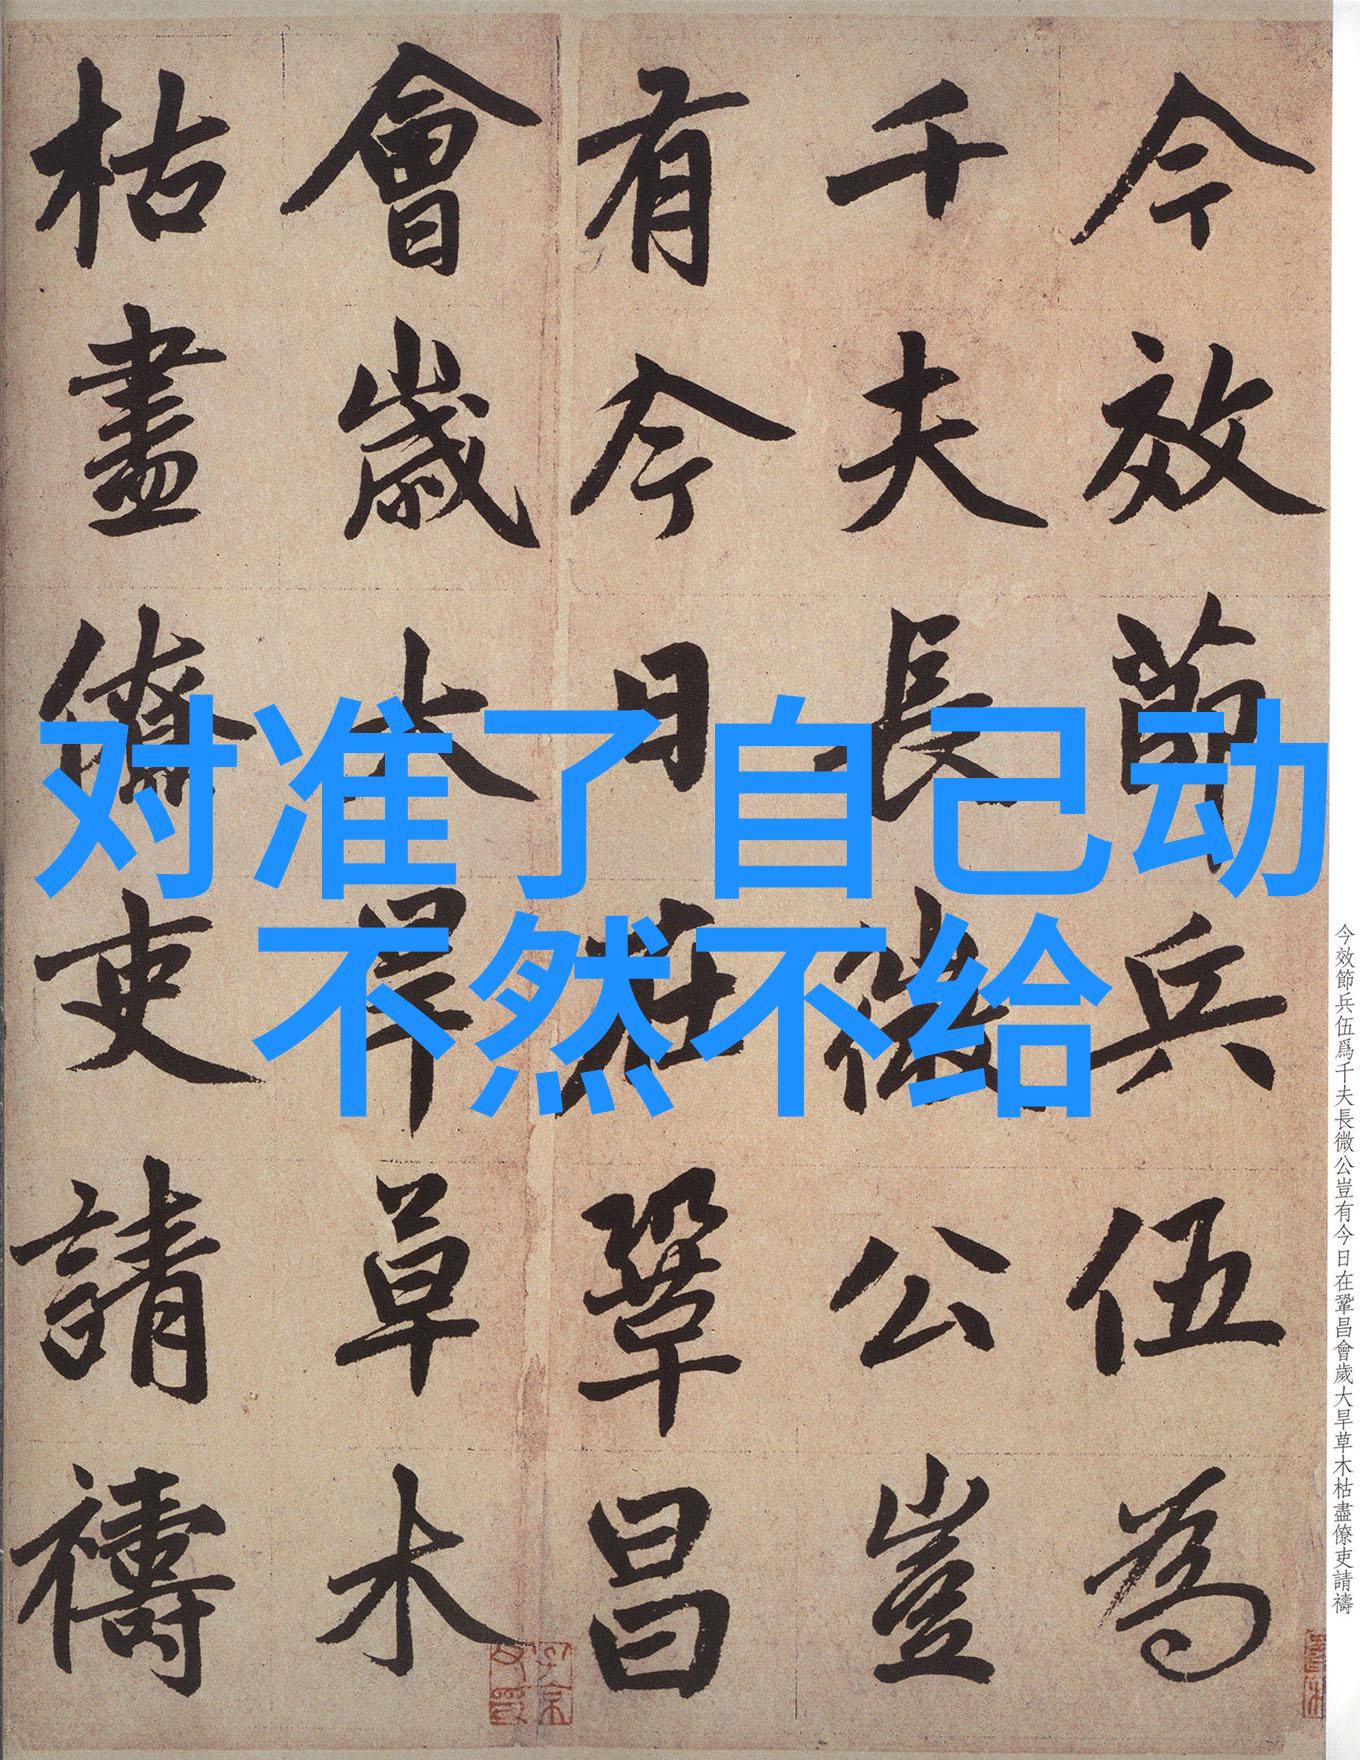 对准了自己动
不然不给
今效節兵伍為
千夫長微公豈
有今日在鞏昌
會歲大旱草木
枯盡僚吏請禱
今效節兵伍爲千夫長微公豈有今日在鞏昌會歲大旱草木枯盡僚吏請禱